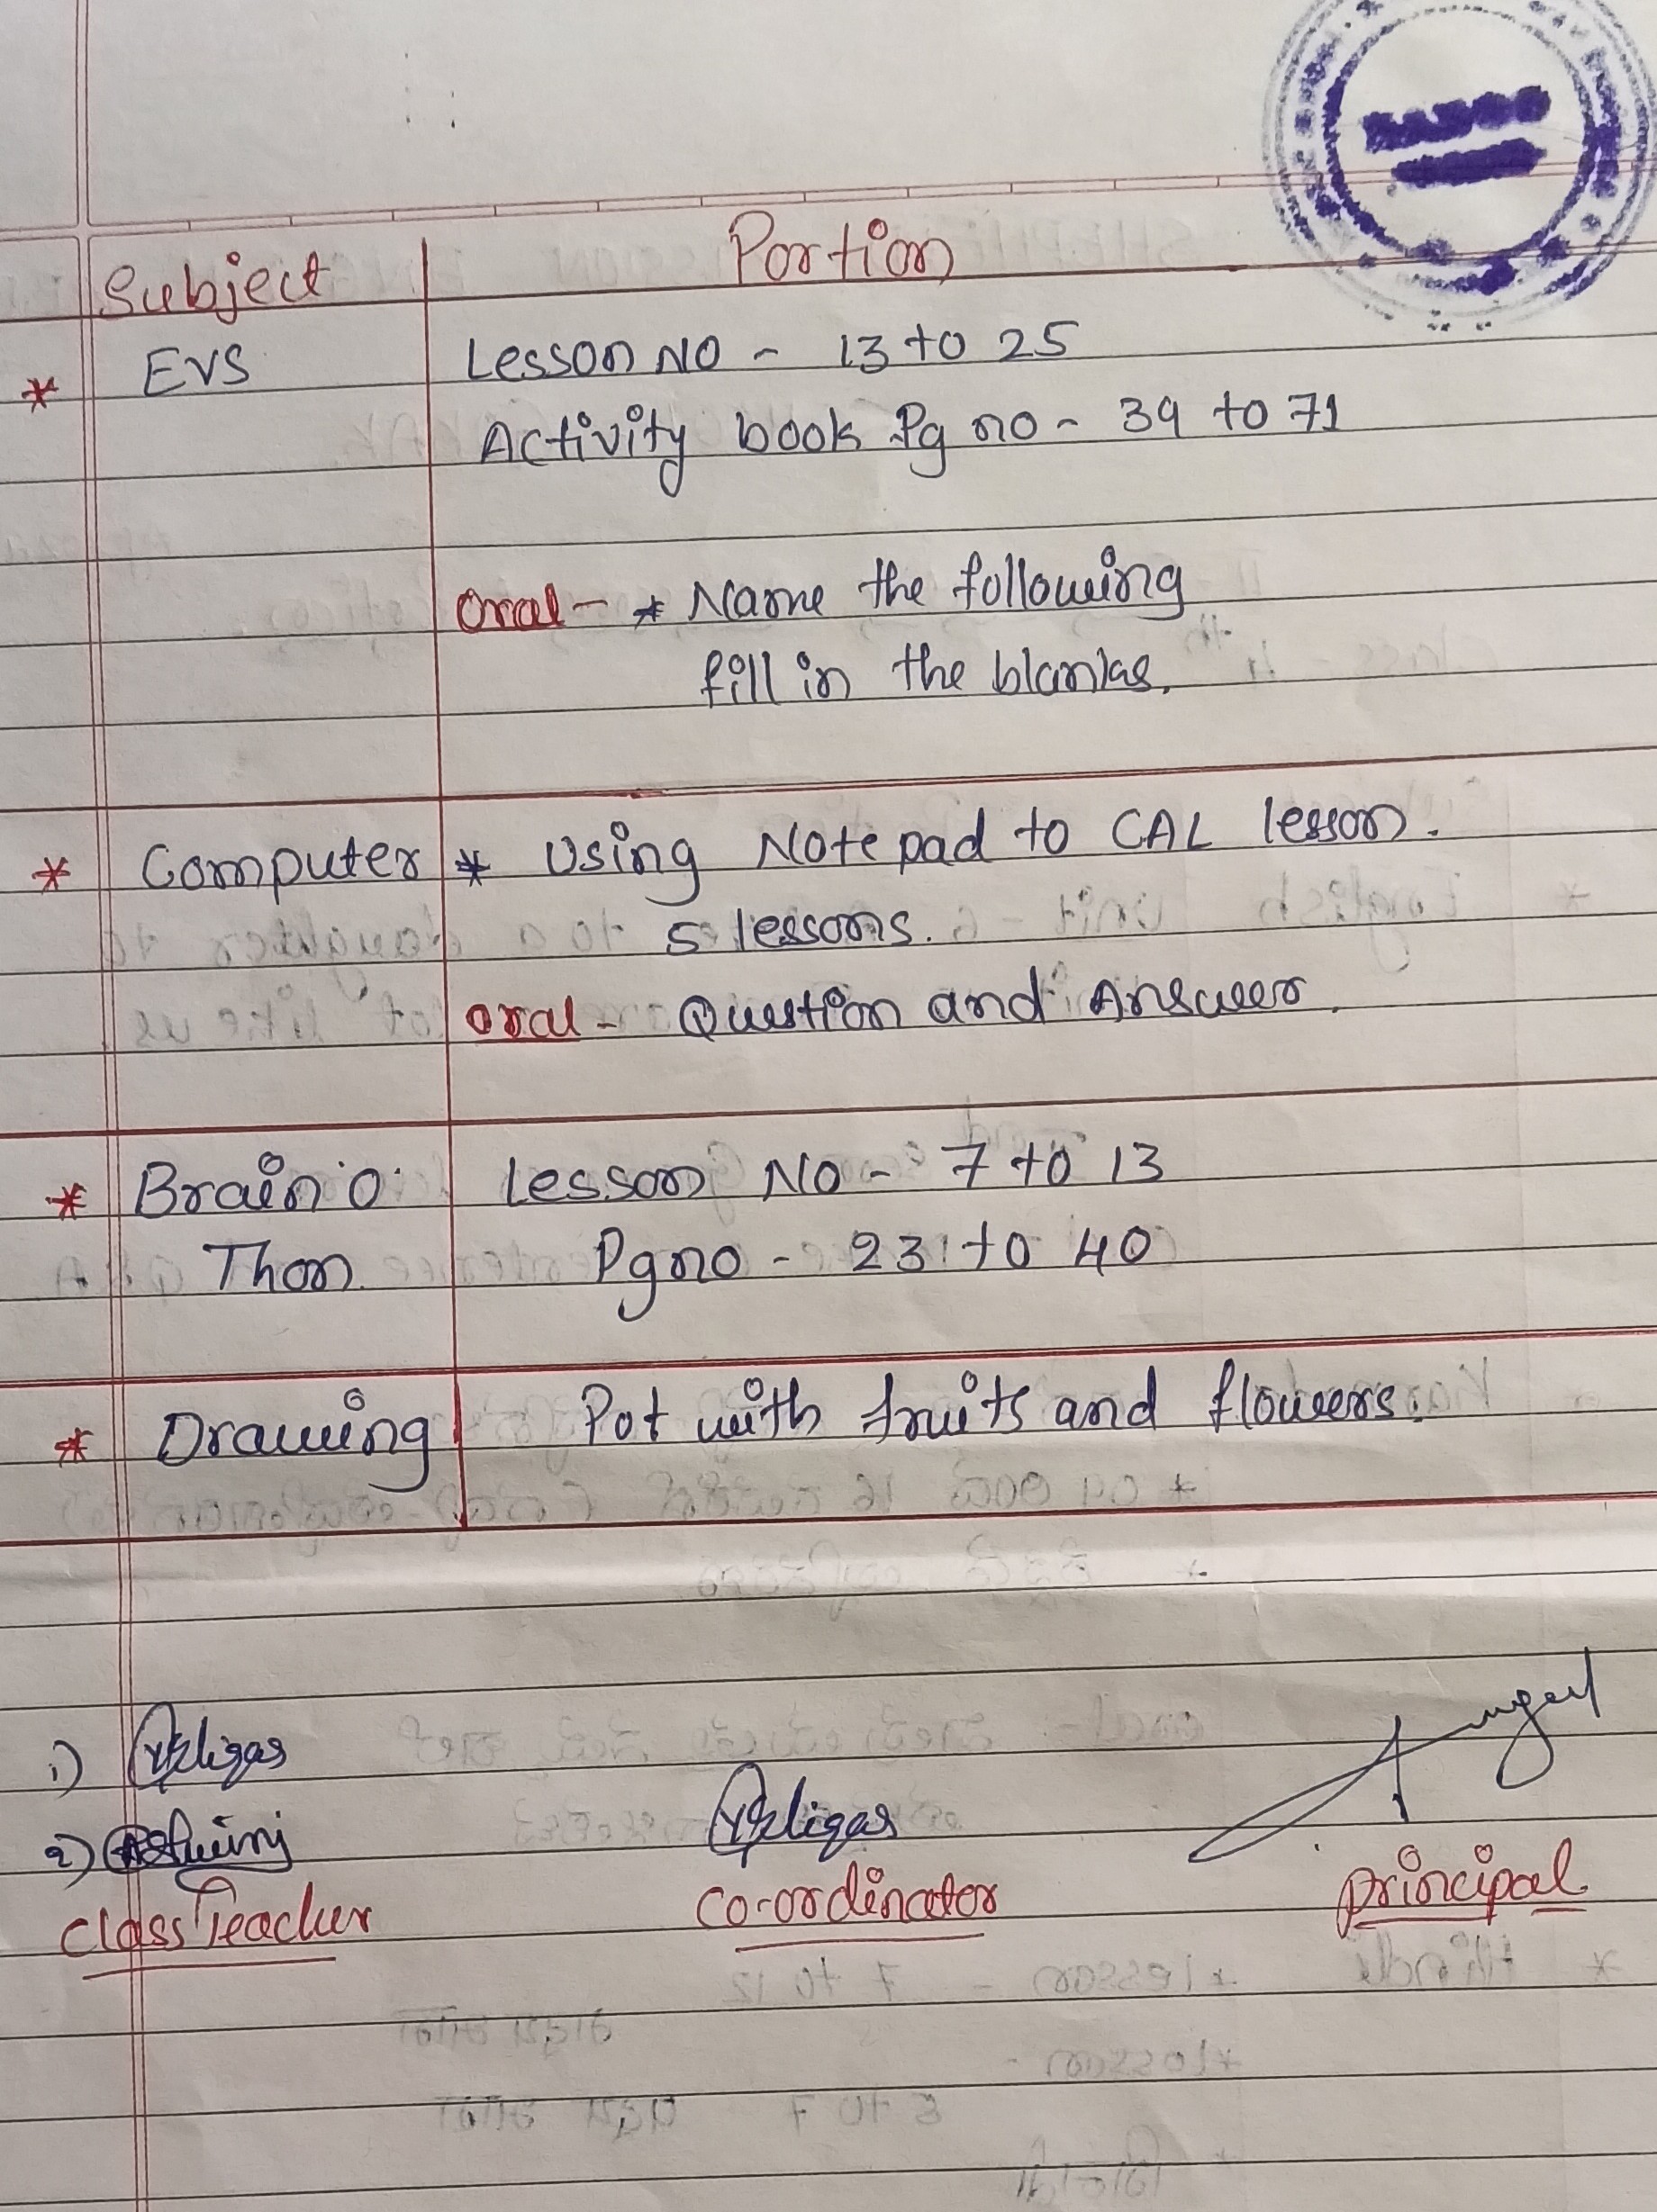 Subject Portion
* EVS Lesson NO - 13 to 25
Activity book Pg no - 39 to 71
Oral - * Name the following
fill in the blanks.
* Computer * Using Note pad to CAL lesson.
5 lessons.
oral - Question and Answer.
* Brain 'O' Lesson No - 7 to 13
Thon Pg no - 23 to 40
* Drawing Pot with fruits and flowers.
1)
2)
Class Teacher Co-ordinator Principal